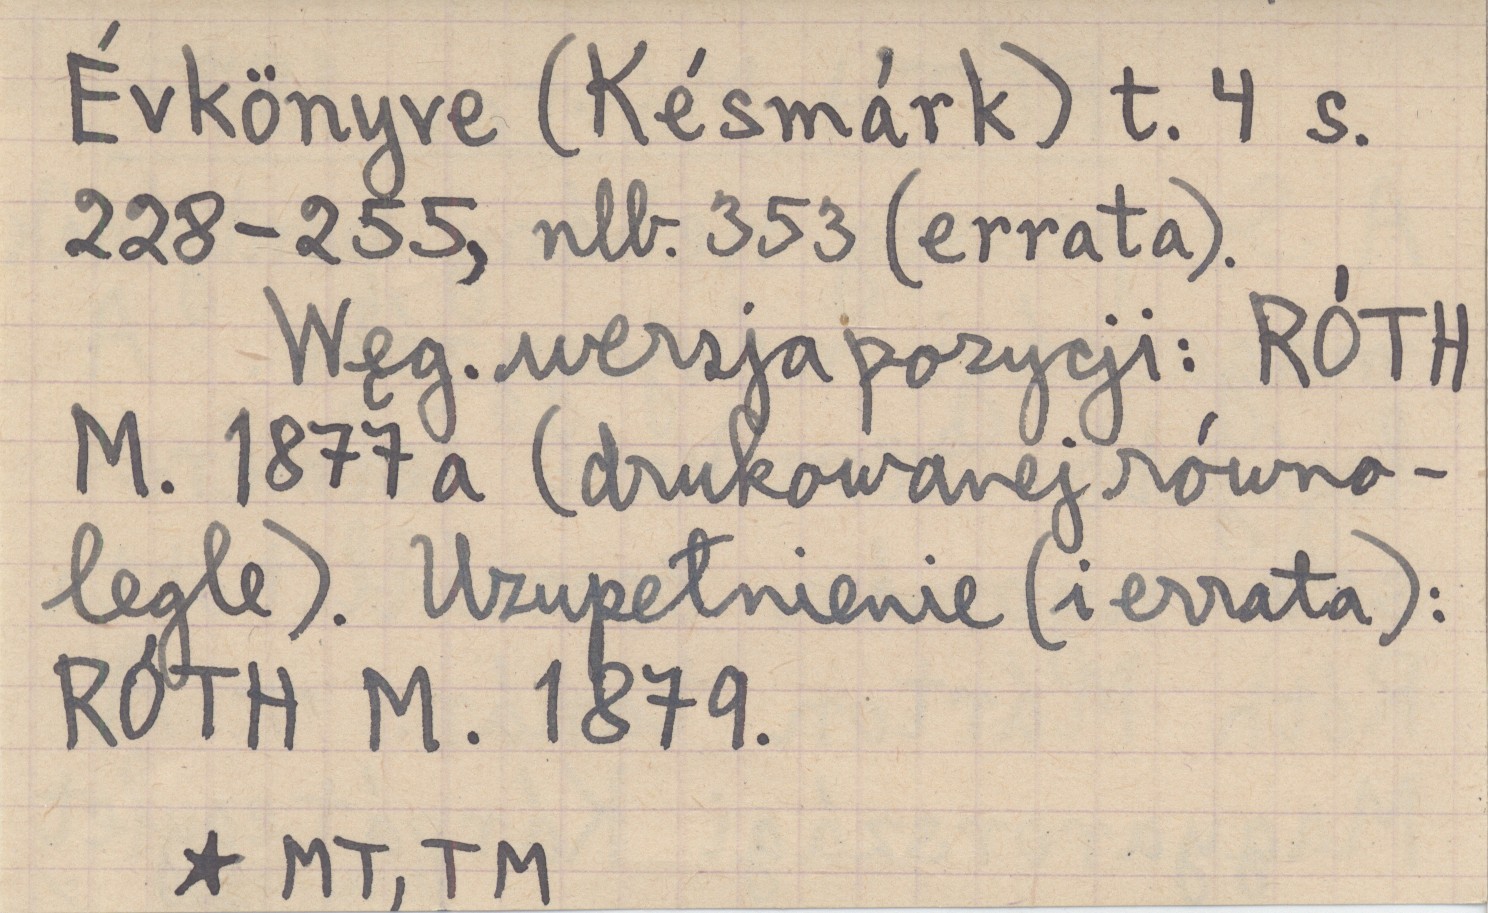 Évkönyve (Késmárk) t. 4 s.
228-255, nlb. 353 (errata).
Węg. wersja pozycji: RÓTH
M. 1877a (drukowanej równo-
legle). Uzupełnienie (i errata):
RÓTH M. 1879.
★ MT, TM